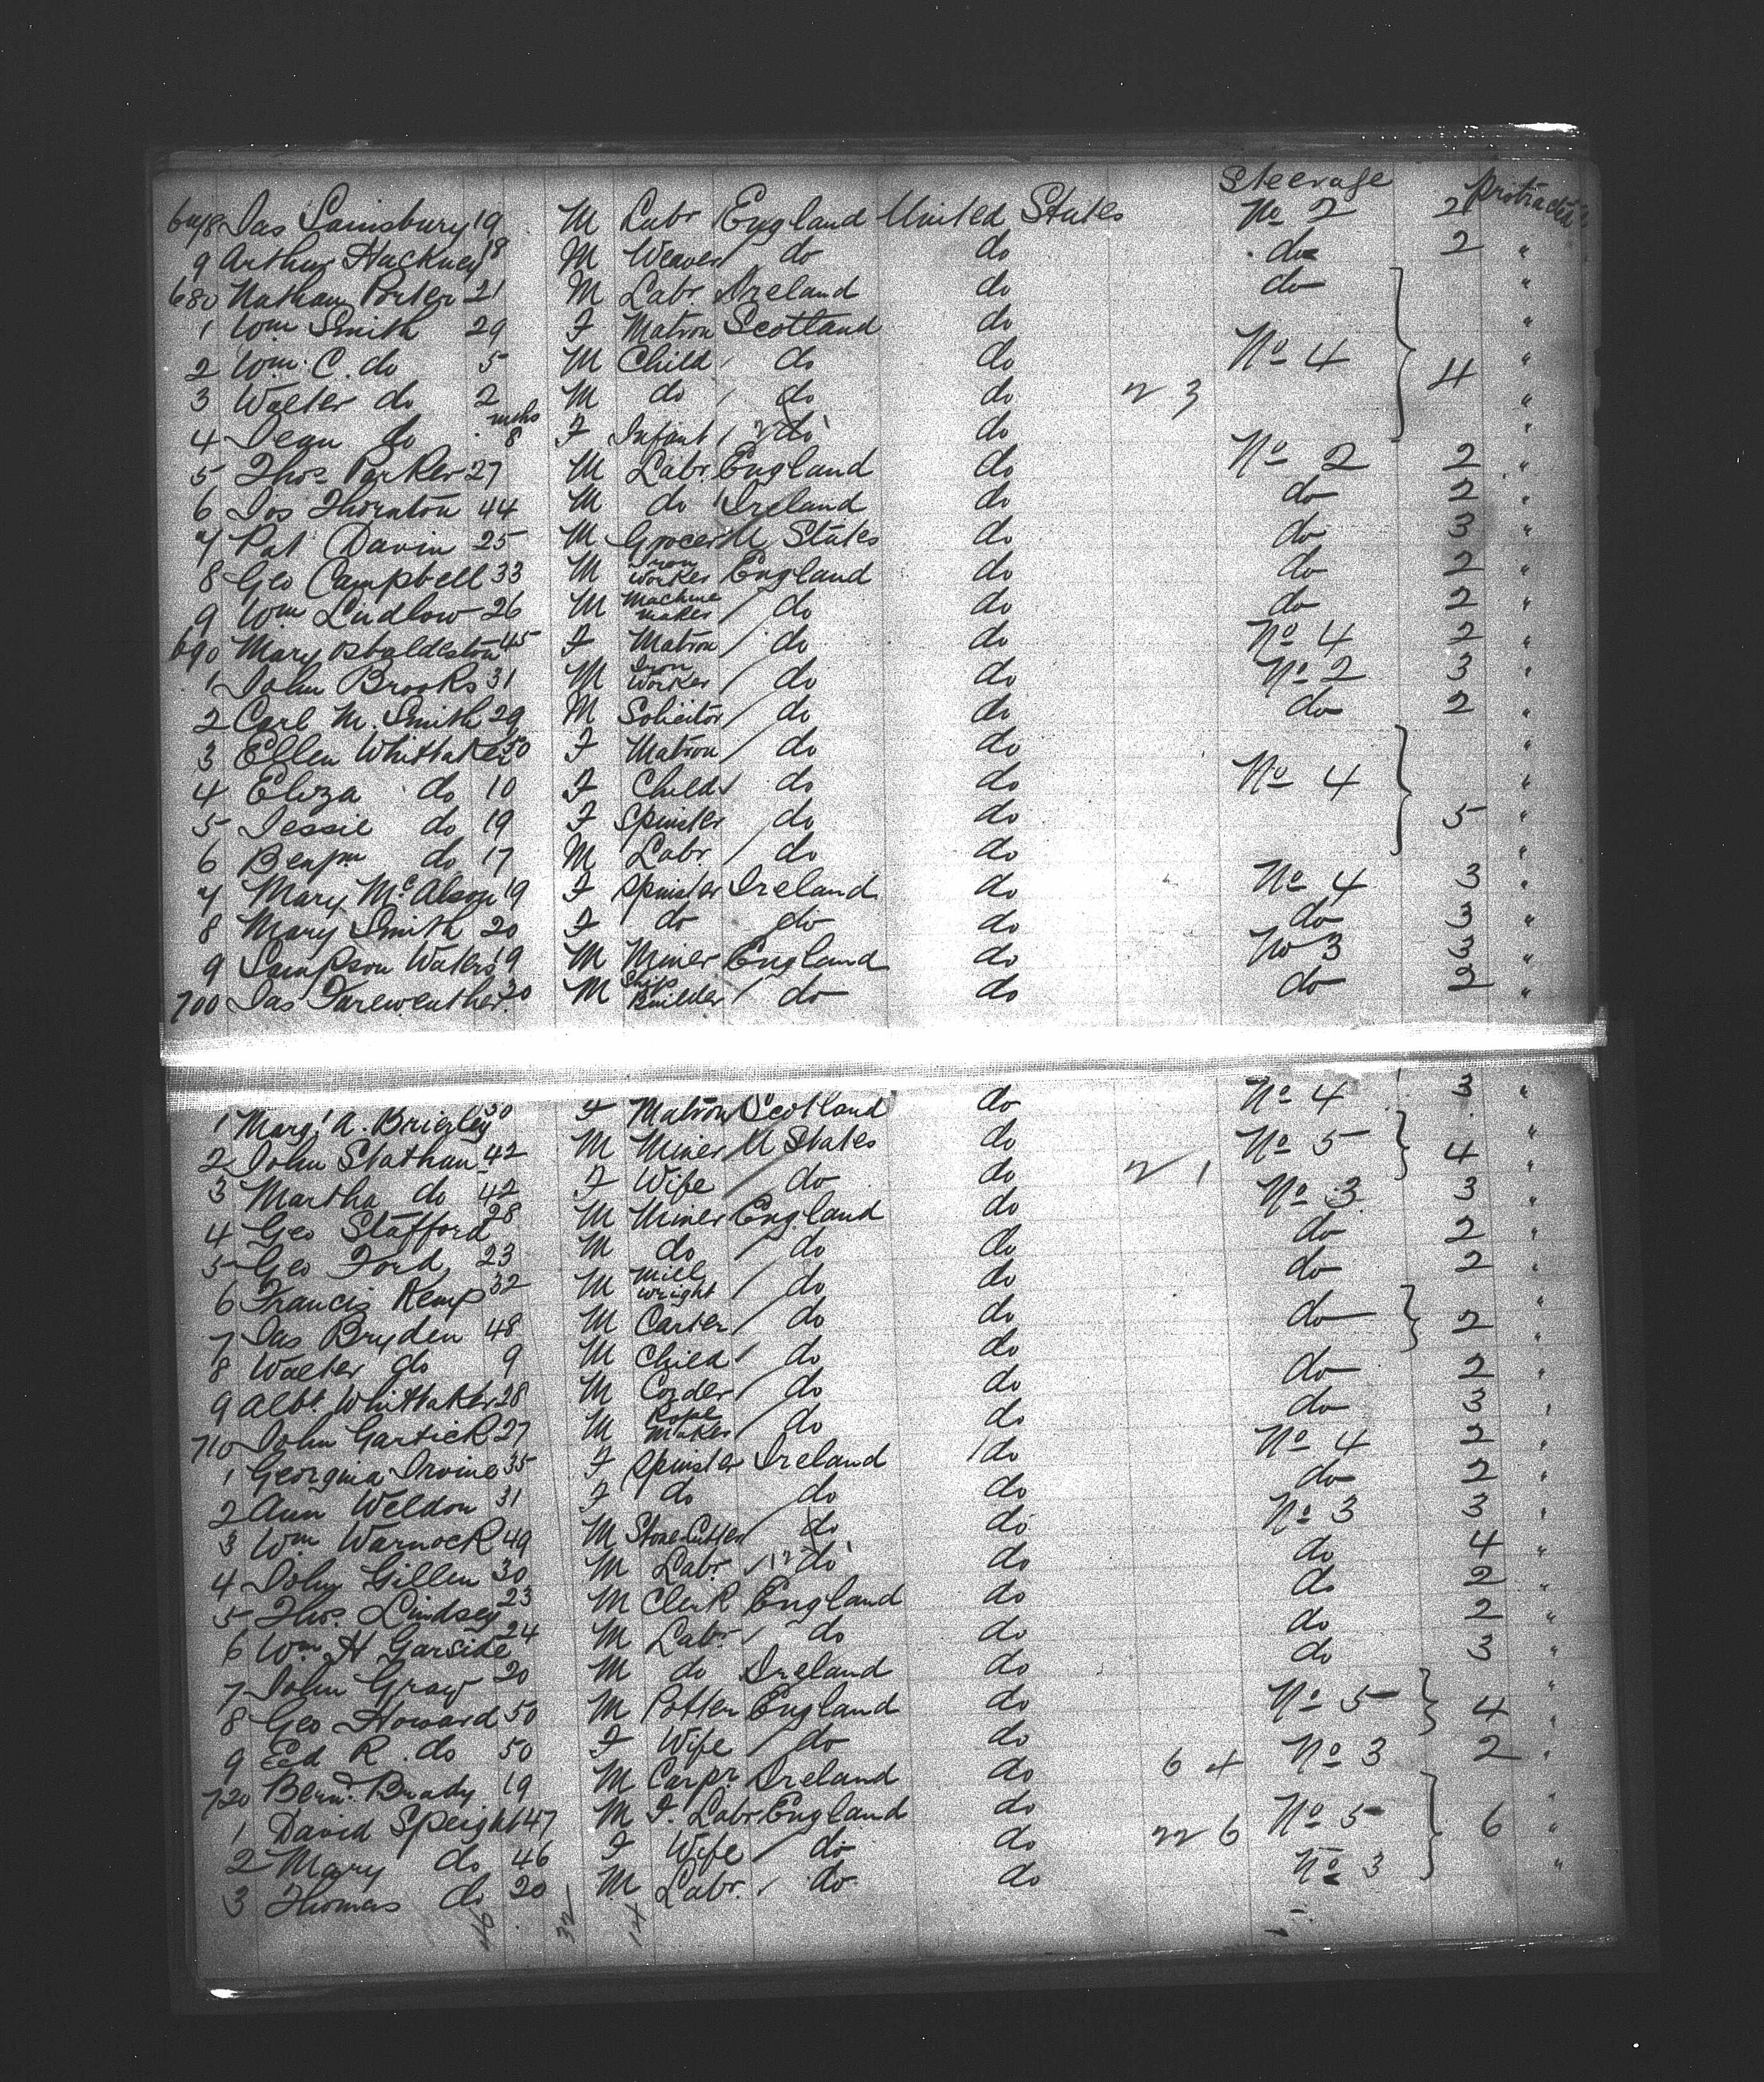 Steerage Protracted
678 Jas Sainsbury 19 M Labr England United States No 2 2
9 Arthur Hackney 18 M Weaver do do do 2 "
680 Nathan Porter 21 M Labr Ireland do do "
1 Wm Smith 29 F Matron Scotland do "
2 Wm. C. do 5 M Child do do No 4 4 "
3 Walter do 2 M do do do 2 3 "
4 Jean do mths 8 F Infant do do "
5 Thos Parker 27 M Labr. England do No 2 2 "
6 Jos Thornton 44 M do Ireland do do 2 "
7 Pat Davin 25 M Grocer U States do do 3 "
8 Geo Campbell 33 M Iron Worker England do do 2 "
9 Wm Ludlow 26 M Machine Maker do do do 2 "
690 Mary Osbaldeston 45 F Matron do do No 4 2 "
1 John Brooks 31 M Iron Worker do do No 2 3 "
2 Carl M. Smith 29 M Solicitor do do do 2 "
3 Ellen Whittaker 50 F Matron do do "
4 Eliza do 10 F Child do do No 4 "
5 Jessie do 19 F Spinster do do 5 "
6 Benjn do 17 M Labr. do do "
7 Mary McAlson 19 F Spinster Ireland do No 4 3 "
8 Mary Smith 20 F do do do do 3 "
9 Sampson Waters 19 M Miner England do No 3 3 "
700 Jas Fareweather 30 M Ship Builder do do do 2 "
1 Margt A. Brierley 30 F Matron Scotland do No 4 3 "
2 John Stathan 42 M Miner U States do No 5 4 "
3 Martha do 42 F Wife do do 2 1 "
4 Geo Stafford 28 M Miner England do No 3 3 "
5 Geo Ford 23 M do do do do 2 "
6 Francis Kemp 32 M Mill wright do do do 2 "
7 Jas Bryden 48 M Carter do do do 2 "
8 Walter do 9 M Child do do "
9 Albt. Whittaker 28 M Corder do do do 2 "
710 John Gartick 27 M Rope Maker do do do 3 "
1 Georgina Irvine 35 F Spinster Ireland do No 4 2 "
2 Ann Weldon 31 F do do do do 2 "
3 Wm Warnock 49 M Stone Cutter do do No 3 3 "
4 John Gillen 30 M Labr. do do do 4 "
5 Thos. Lindsey 23 M Clerk England do do 2 "
6 Wm H Garside 24 M Labr. do do do 2 "
7 John Gray 20 M do Ireland do do 3 "
8 Geo Howard 50 M Potter England do No 5 4 "
9 Ed R. do 50 F Wife do do "
720 Bernd. Brady 19 M Carpr Ireland do 6 4 No 3 2 "
1 David Speight 47 M F. Labr England do No 5 6 "
2 Mary do 46 F Wife do do 22 6 "
3 Thomas do 20 M Labr. do do No 3 "